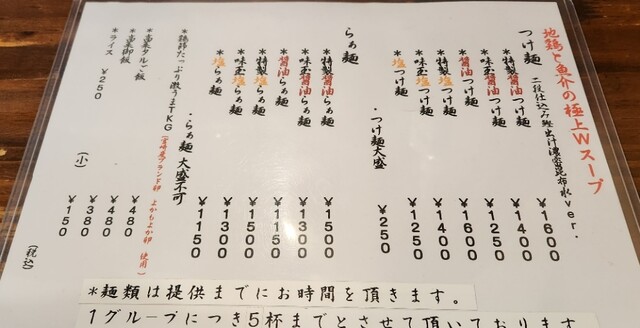 地鶏と魚介の極上Wスープ
つけ麺 二段仕込み鰹出汁濃密昆布水ver.
*特製醤油つけ麺 ¥1600
*味玉醤油つけ麺 ¥1400
*醤油つけ麺 ¥1250
*特製塩つけ麺 ¥1600
*味玉塩つけ麺 ¥1400
*塩つけ麺 ¥1250
・つけ麺大盛 ¥250
らぁ麺
*特製醤油らぁ麺 ¥1500
*味玉醤油らぁ麺 ¥1300
*醤油らぁ麺 ¥1150
*特製塩らぁ麺 ¥1500
*味玉塩らぁ麺 ¥1300
*塩らぁ麺 ¥1150
・らぁ麺 大盛不可
*鶏節たっぷり激うまTKG(宮崎産ブランド卵 よかもよか卵 使用) ¥480
*高菜 ¥480
*高菜御飯 ¥380
*ライス ¥250 (小) ¥150
(税込)
*麺類は提供までにお時間を頂きます。
1グループにつき5杯までとさせて頂いております